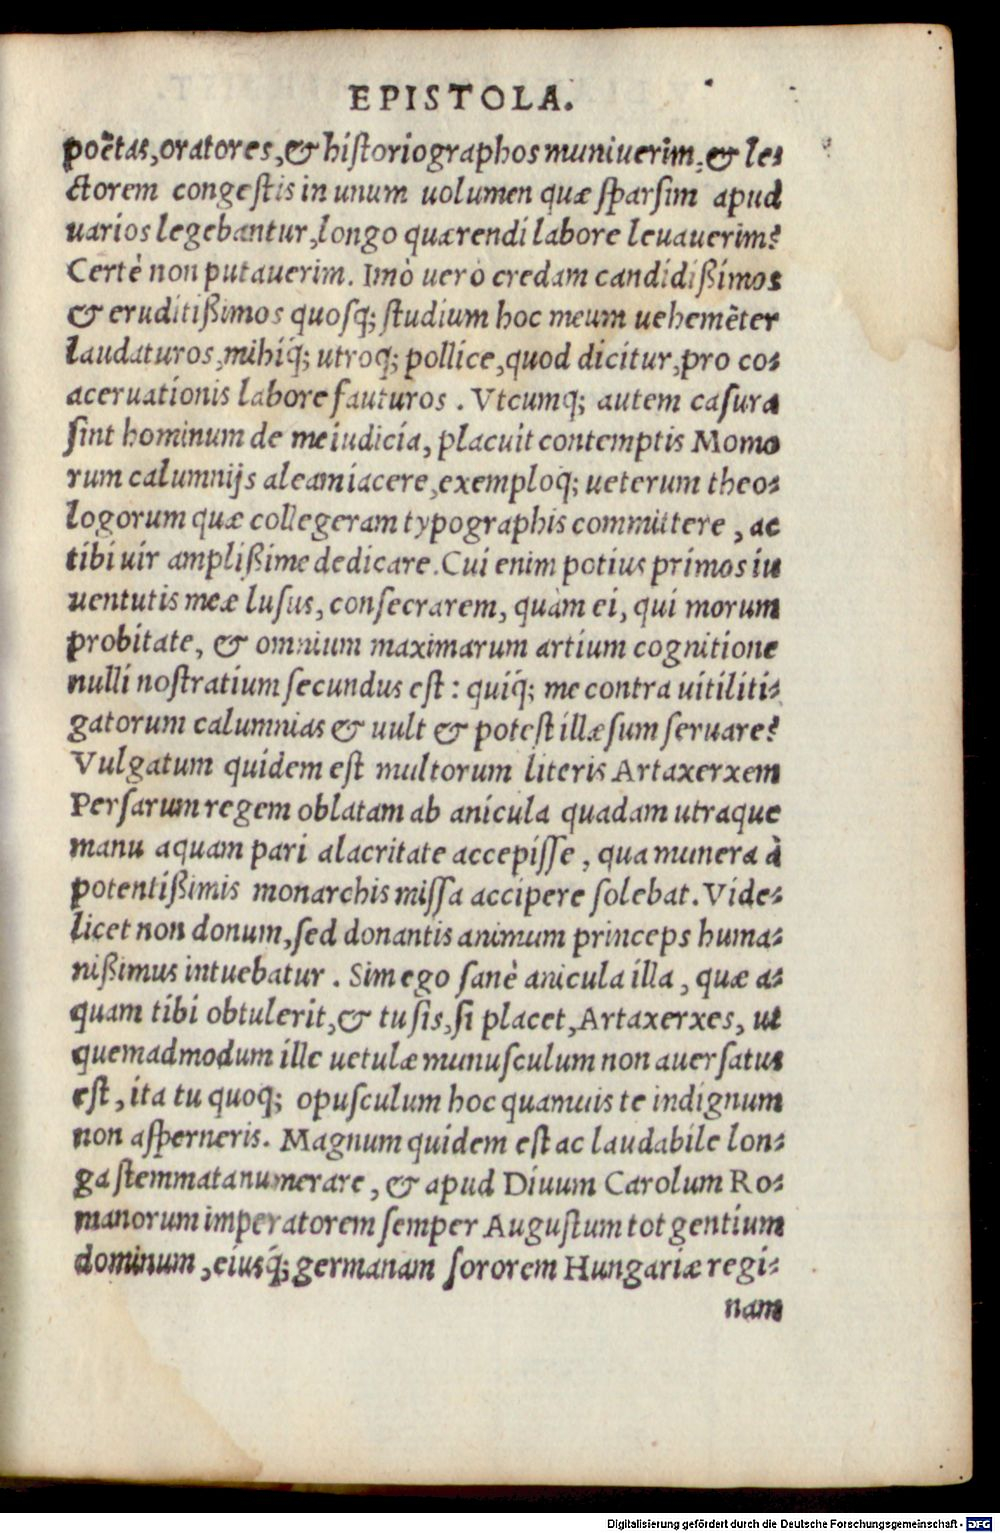 EPISTOLA.
poëtas, oratores, & historiographos muniuerim, & le-
ctorem congestis in unum uolumen quæ sparsim apud
uarios legebantur, longo quærendi labore leuauerim?
Certè non putauerim. Imò uerò credam candidißimos
& eruditißimos quosq; studium hoc meum uehemēter
laudaturos, mihiq́; utroq; pollice, quod dicitur, pro co-
aceruationis labore fauturos. Vtcumq; autem casura
sint hominum de me iudicia, placuit contemptis Momo
rum calumnijs aleam iacere, exemploq́; ueterum theo-
logorum quæ collegeram typographis committere, ac
tibi uir amplißime dedicare. Cui enim potius primos iu
uentutis meæ lusus, consecrarem, quàm ei, qui morum
probitate, & omnium maximarum artium cognitione
nulli nostratium secundus est: quiq́; me contra uitiliti-
gatorum calumnias & uult & potest illæsum seruare?
Vulgatum quidem est multorum literis Artaxerxem
Persarum regem oblatam ab anicula quadam utraque
manu aquam pari alacritate accepisse, qua munera à
potentißimis monarchis missa accipere solebat. Vide-
licet non donum, sed donantis animum princeps huma-
nißimus intuebatur. Sim ego sanè anicula illa, quæ a-
quam tibi obtulerit, & tu sis, si placet, Artaxerxes, ut
quemadmodum ille uetulæ munusculum non auersatus
est, ita tu quoq; opusculum hoc quamuis te indignum
non asperneris. Magnum quidem est ac laudabile lon-
ga stemmata numerare, & apud Diuum Carolum Ro-
manorum imperatorem semper Augustum tot gentium
dominum, eiusq́; germanam sororem Hungariæ regi-
nam
Digitalisierung gefördert durch die Deutsche Forschungsgemeinschaft - DFG